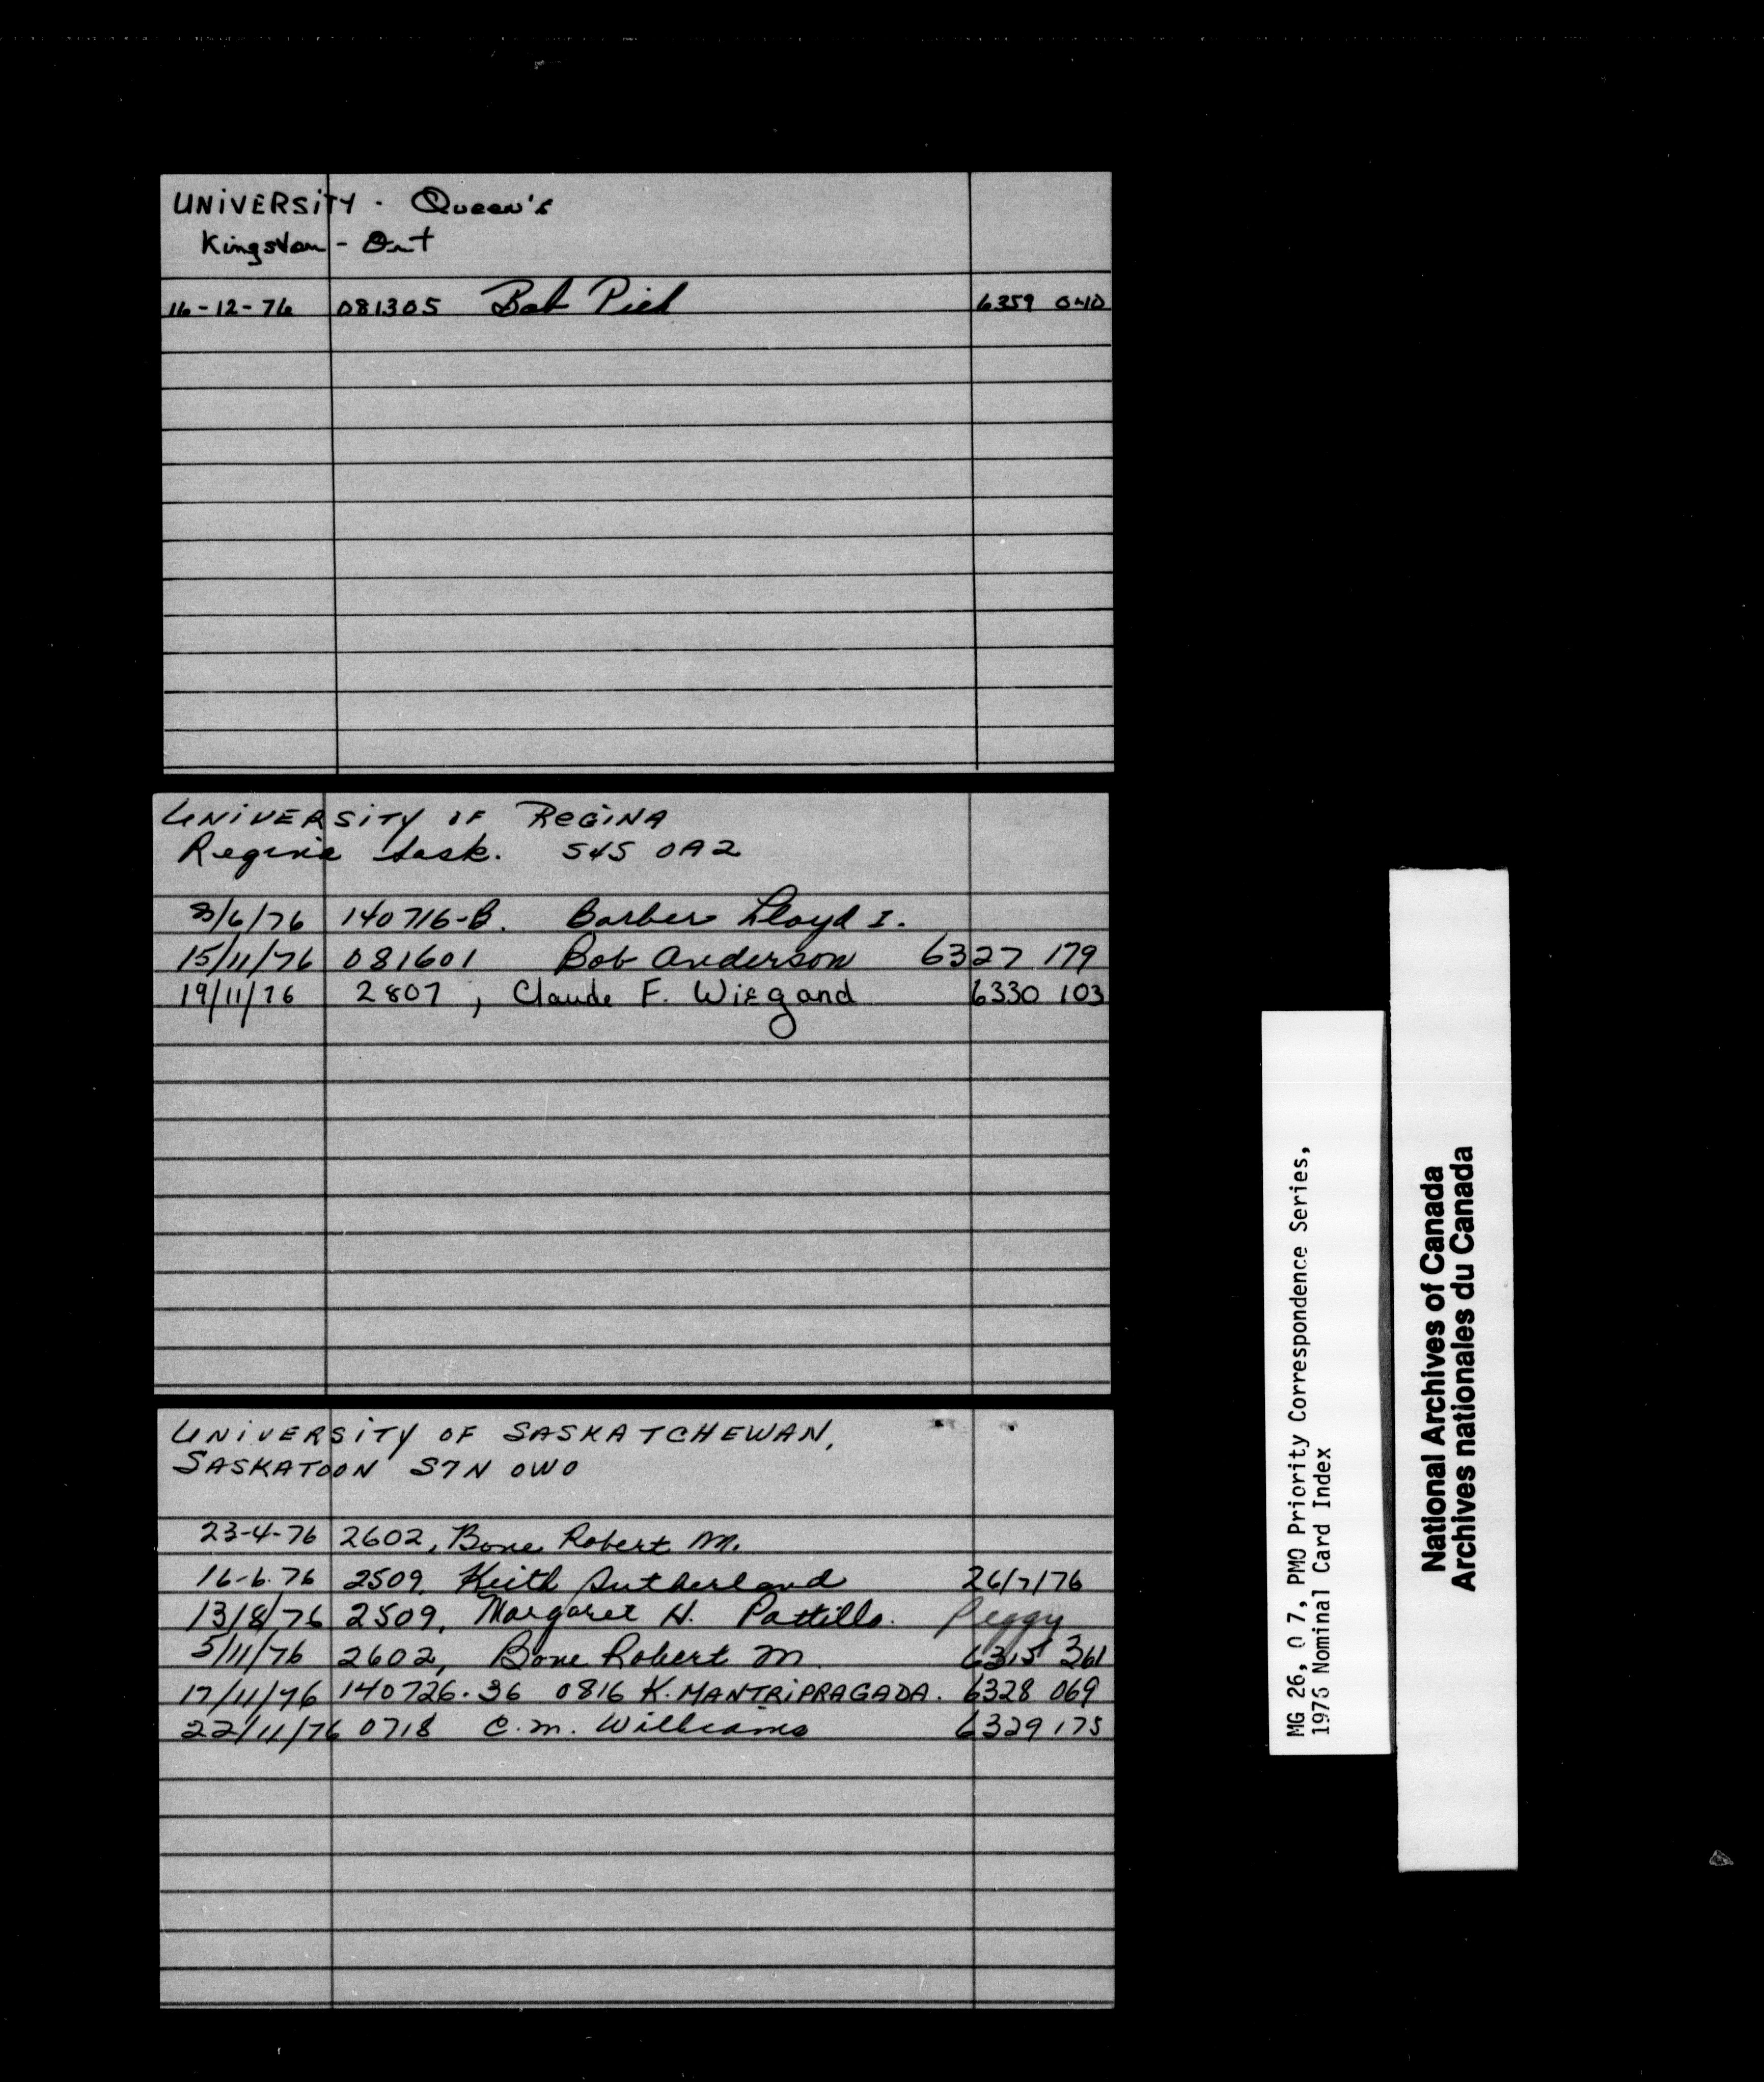 UNIVERSITY - Queen's
Kingston - Ont
16-12-76 081305 Bob Piel 6359 040
UNIVERSITY OF REGINA
Regina Sask. S4S 0A2
8/6/76 140716-B. Barber Lloyd I.
15/11/76 081601 Bob Anderson 6327 179
19/11/76 2807, Claude F. Wiegand 6330 103
UNIVERSITY OF SASKATCHEWAN,
SASKATOON S7N 0W0
23-4-76 2602, Bone Robert M.
16-6-76 2509, Keith Sutherland 26/7/76
13/8/76 2509, Margaret H. Pattillo. Peggy
5/11/76 2602, Bone Robert M. 6315 361
17/11/76 140726.36 0816 K. MANTRIPRAGADA. 6328 069
22/11/76 0718 C.M. Williams 6329 175
MG 26, O 7, PMO Priority Correspondence Series,
1976 Nominal Card Index
National Archives of Canada
Archives nationales du Canada